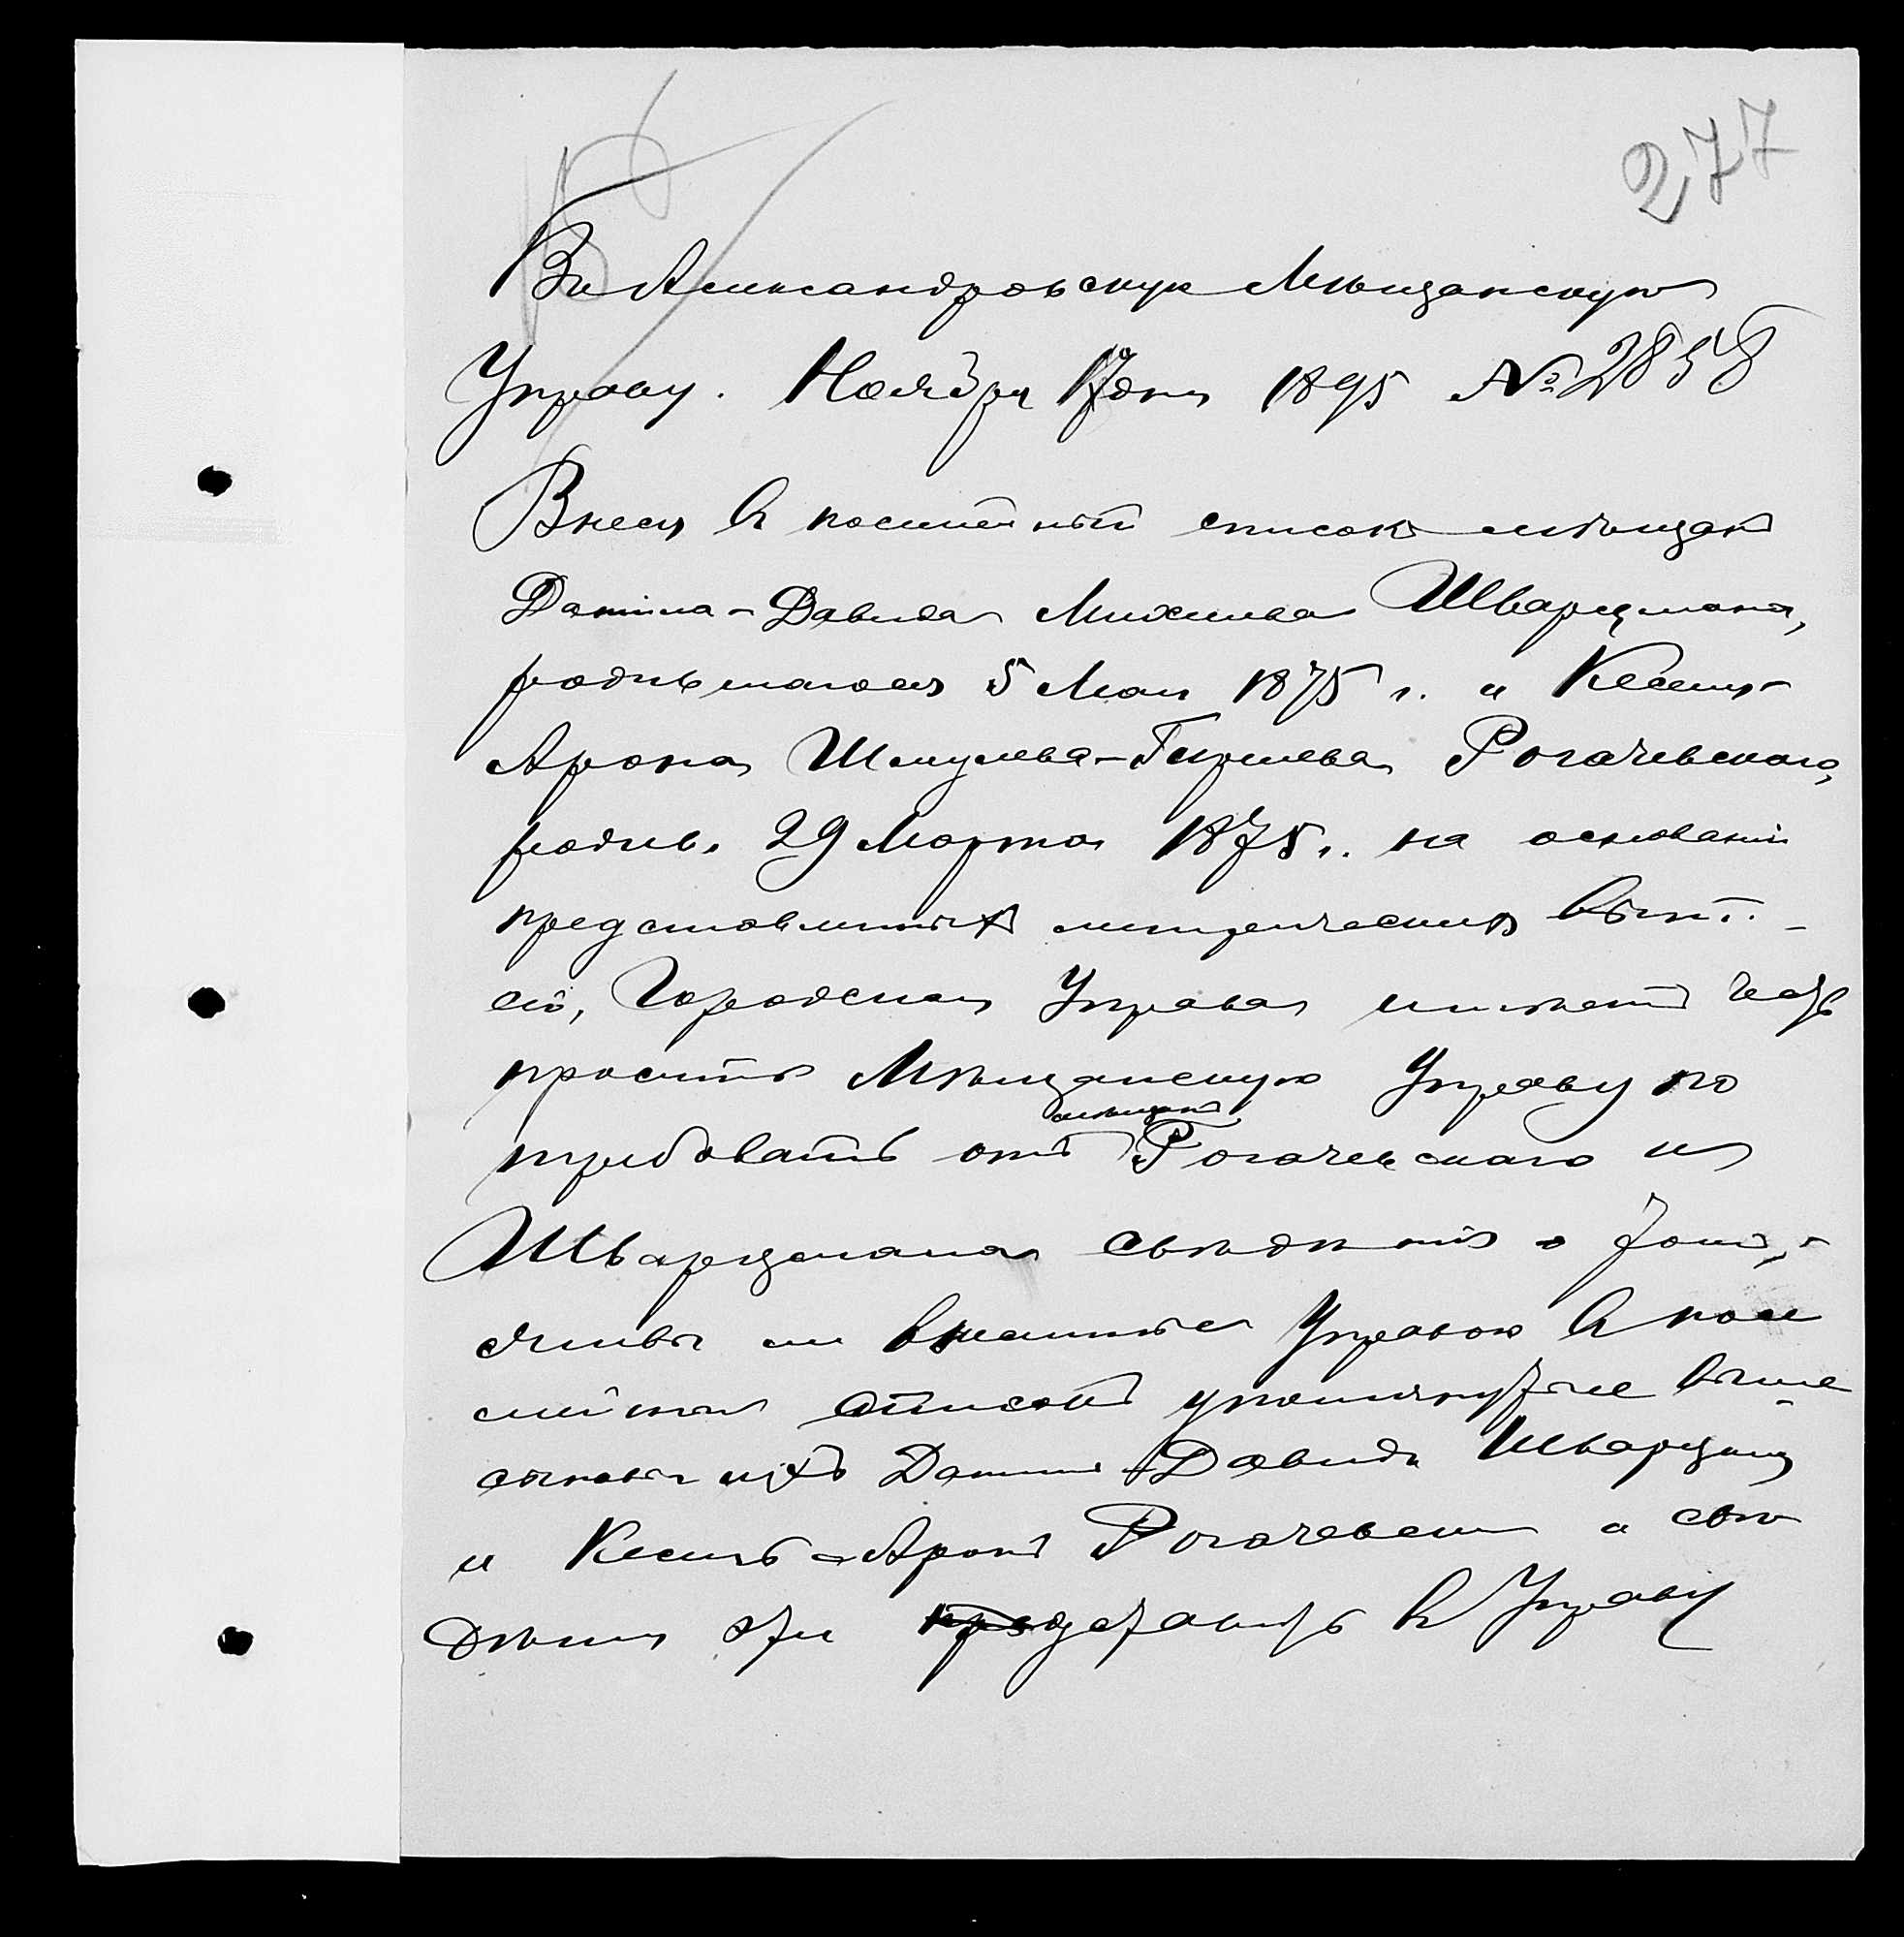 277
Въ Александровскую Мѣщанскую
Управу. Ноября 17 дня 1895 № 2858
Внеся въ посемейный списокъ мѣщанъ
Давида Михелева Шварцмана,
родившагося 5 Мая 1875 г. и
Арона Шмулева-Гиршева Рогачевскаго,
родив. 29 Марта 1875 г. на основаніи
представленныхъ метрическихъ
Городская Управа имѣетъ честь
просить Мѣщанскую Управу по
требовать отъ мѣщанъ Рогачевскаго и
Шварцмана свѣдѣнія о
ли внесенные Управою въ посе
мейный списокъ упомянутые выше
сыновья ихъ Давидъ Шварцманъ
и Аронъ Рогачевскій и свѣ
дѣнія эти представить въ Управу